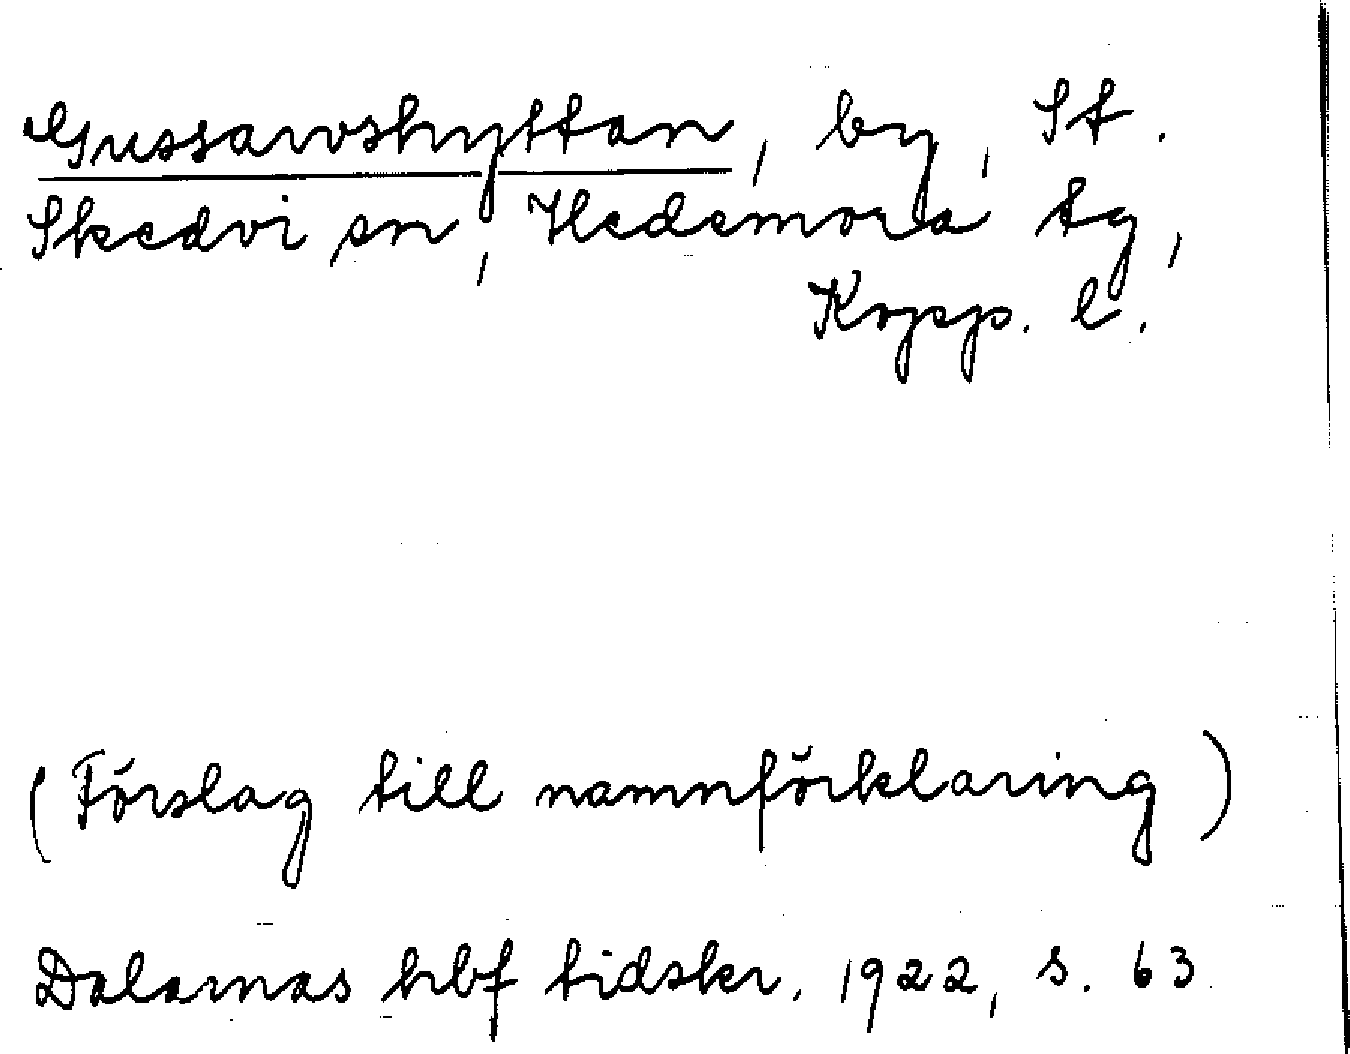 Gussavshyttan, by, St.
Skedvi sn, Hedemora tg,
Kopp. l.
(Förslag till namnförklaring)
Dalarnas hbf tidskr. 1922, s. 63